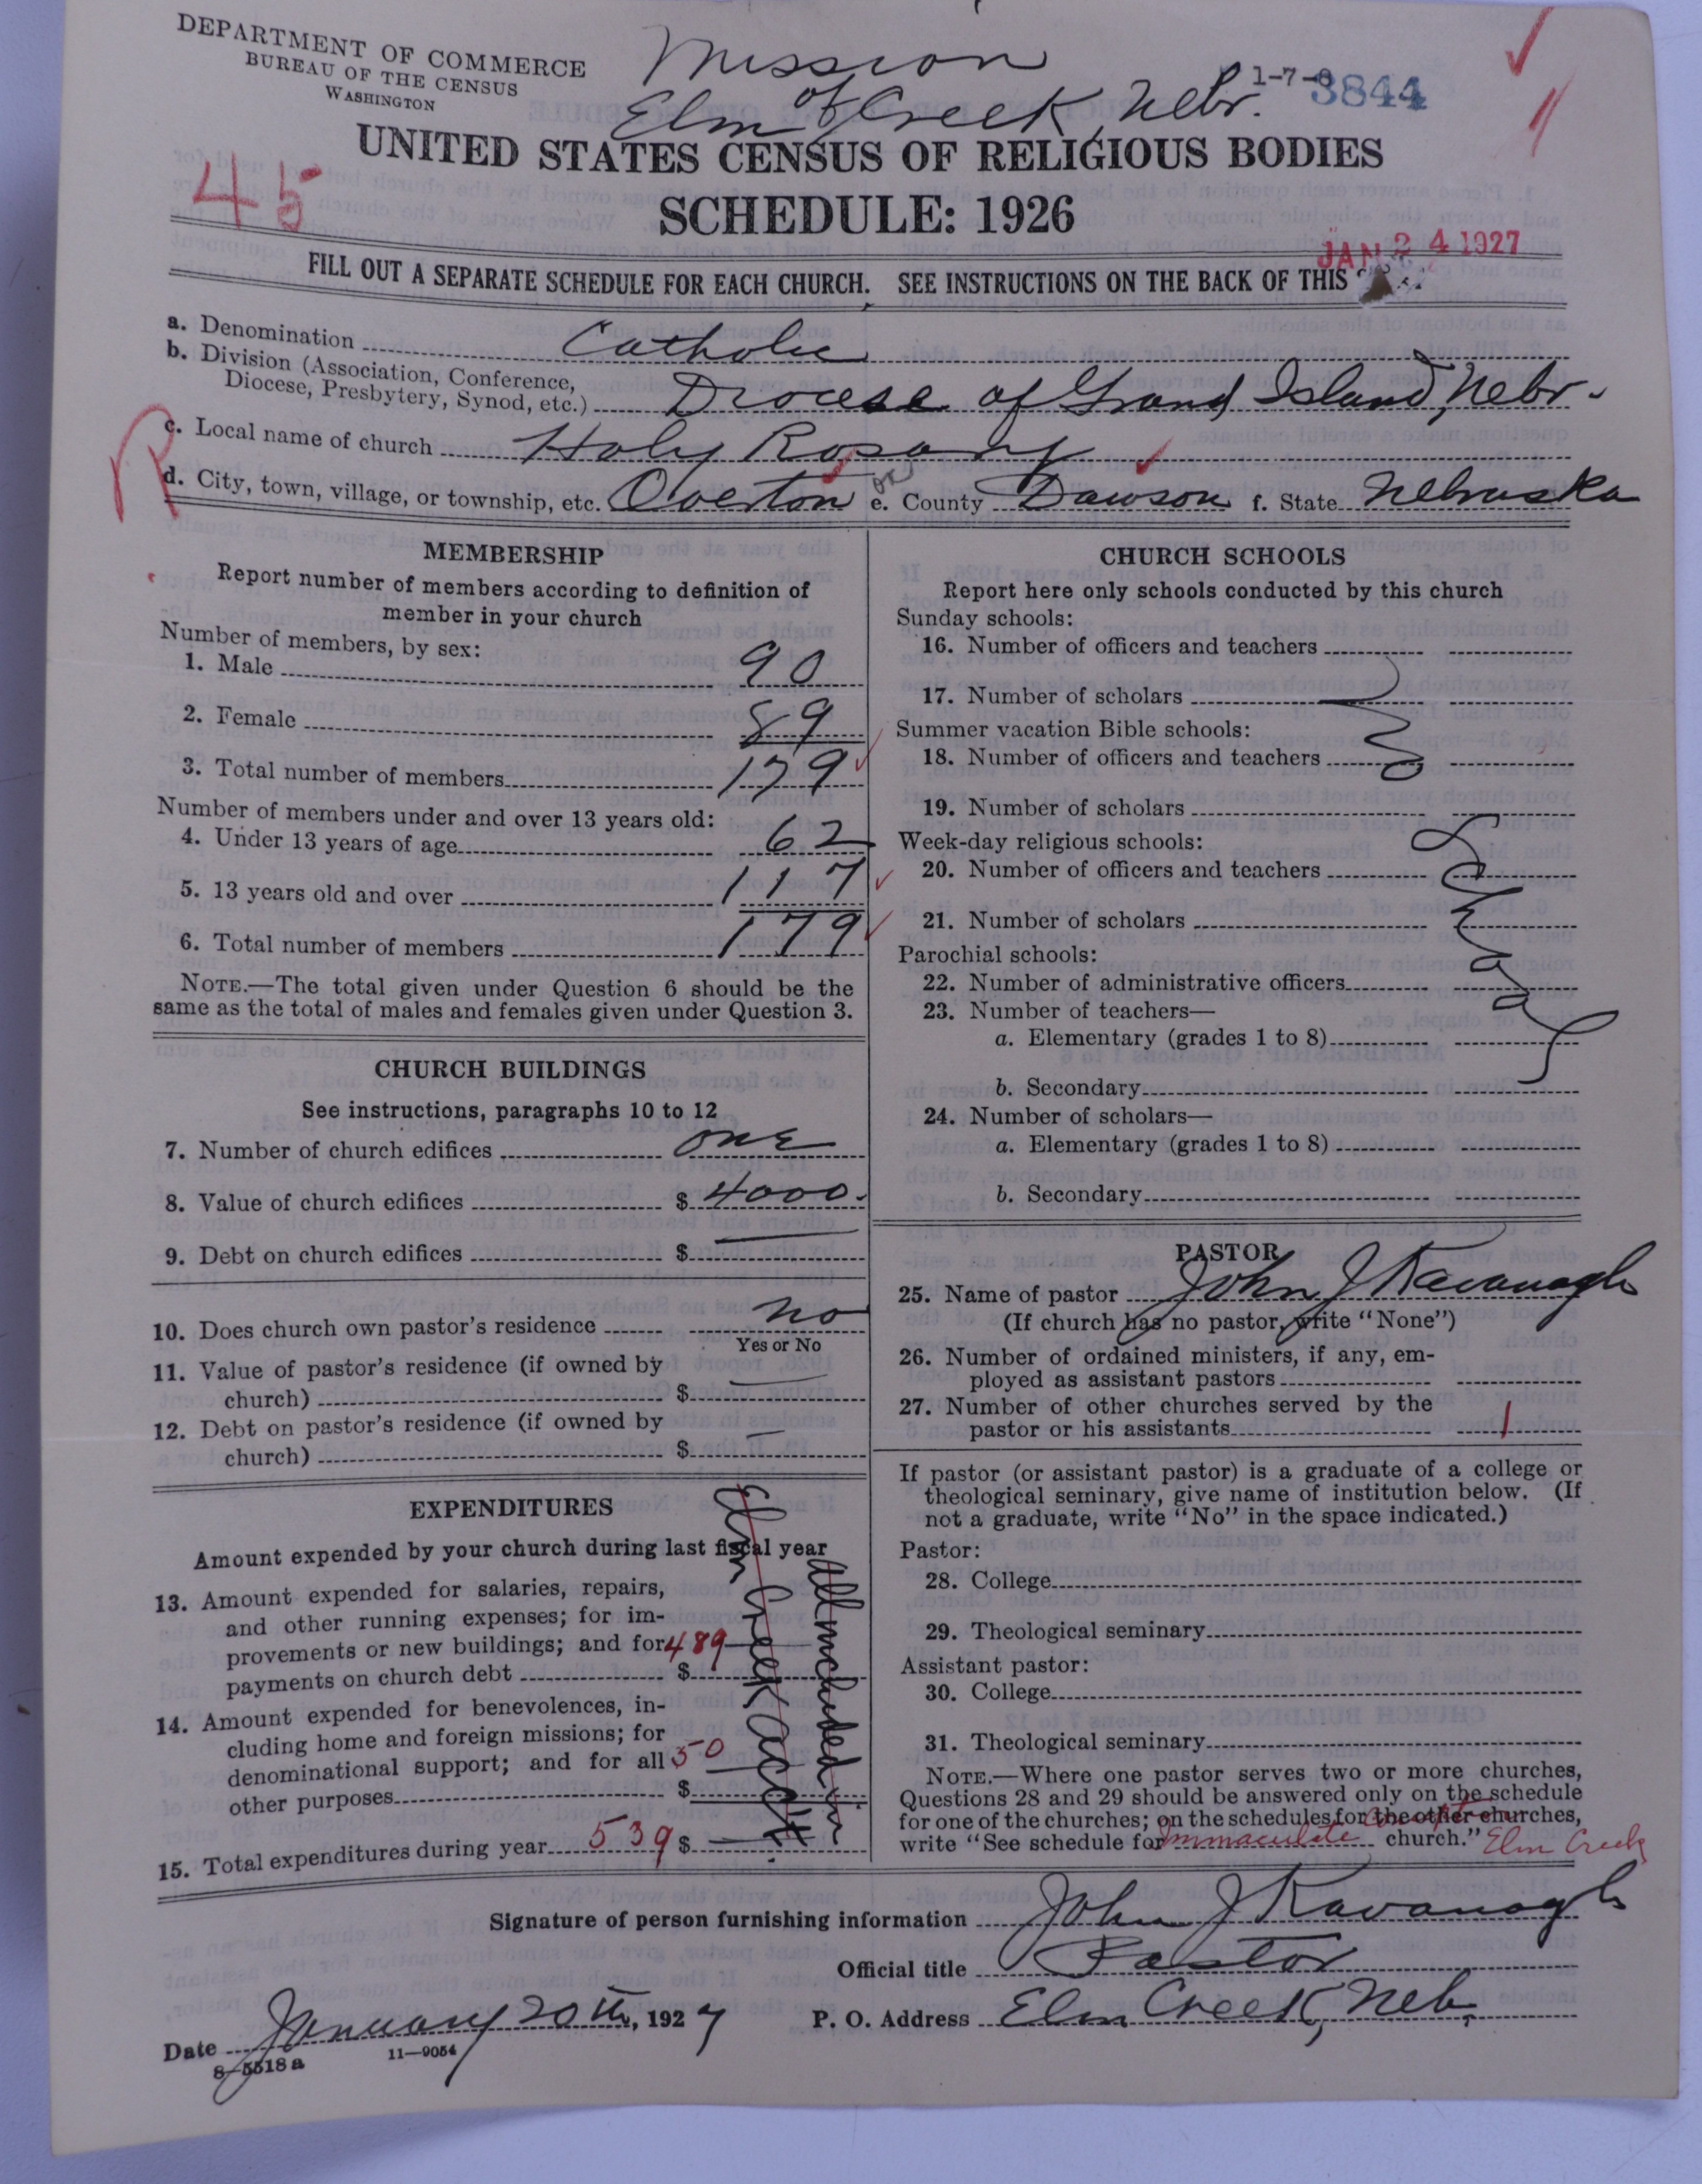 DEPARTMENT OF COMMERCE
BUREAU OF THE CENSUS
WASHINGTON
Mission
of
Elm Creek, Nebr.
1-7-8
3844
45
UNITED STATES CENSUS OF RELIGIOUS BODIES
SCHEDULE: 1926
JAN 24 1927
FILL OUT A SEPARATE SCHEDULE FOR EACH CHURCH. SEE INSTRUCTIONS ON THE BACK OF THIS
a. Denomination Catholic
b. Division (Association, Conference,
Diocese, Presbytery, Synod, etc.) Diocese of Grand Island, Nebr.
R
c. Local name of church Holy Rosary
d. City, town, village, or township, etc. Overton e. County Dawson f. State Nebraska
MEMBERSHIP
Report number of members according to definition of
member in your church
Number of members, by sex:
1. Male 90
2. Female 89
3. Total number of members 179
Number of members under and over 13 years old:
4. Under 13 years of age 62
5. 13 years old and over 117
6. Total number of members 179
NOTE.—The total given under Question 6 should be the
same as the total of males and females given under Question 3.
CHURCH BUILDINGS
See instructions, paragraphs 10 to 12
7. Number of church edifices one
8. Value of church edifices $ 4000.
9. Debt on church edifices $ —
10. Does church own pastor's residence no
Yes or No
11. Value of pastor's residence (if owned by
church) $ —
12. Debt on pastor's residence (if owned by
church) $ —
EXPENDITURES
Amount expended by your church during last fiscal year
13. Amount expended for salaries, repairs,
and other running expenses; for im-
provements or new buildings; and for 489
payments on church debt $
14. Amount expended for benevolences, in-
cluding home and foreign missions; for
denominational support; and for all 50
other purposes $
15. Total expenditures during year 539 $ —
All included in
Elm Creek acct
CHURCH SCHOOLS
Report here only schools conducted by this church
Sunday schools:
16. Number of officers and teachers
17. Number of scholars
Summer vacation Bible schools:
18. Number of officers and teachers
19. Number of scholars
Week-day religious schools:
20. Number of officers and teachers
21. Number of scholars
Parochial schools:
22. Number of administrative officers
23. Number of teachers—
a. Elementary (grades 1 to 8)
b. Secondary
24. Number of scholars—
a. Elementary (grades 1 to 8)
b. Secondary
PASTOR
25. Name of pastor John J Kavanagh
(If church has no pastor, write "None")
26. Number of ordained ministers, if any, em-
ployed as assistant pastors
27. Number of other churches served by the
pastor or his assistants 1
If pastor (or assistant pastor) is a graduate of a college or
theological seminary, give name of institution below. (If
not a graduate, write "No" in the space indicated.)
Pastor:
28. College
29. Theological seminary
Assistant pastor:
30. College
31. Theological seminary
NOTE.—Where one pastor serves two or more churches,
Questions 28 and 29 should be answered only on the schedule
for one of the churches; on the schedules for the other churches,
write "See schedule for Immaculate Conception church." Elm Creek
Signature of person furnishing information John J Kavanagh
Official title Pastor
Date January 20th, 1927 P. O. Address Elm Creek, Neb.
8-5518a 11-9054